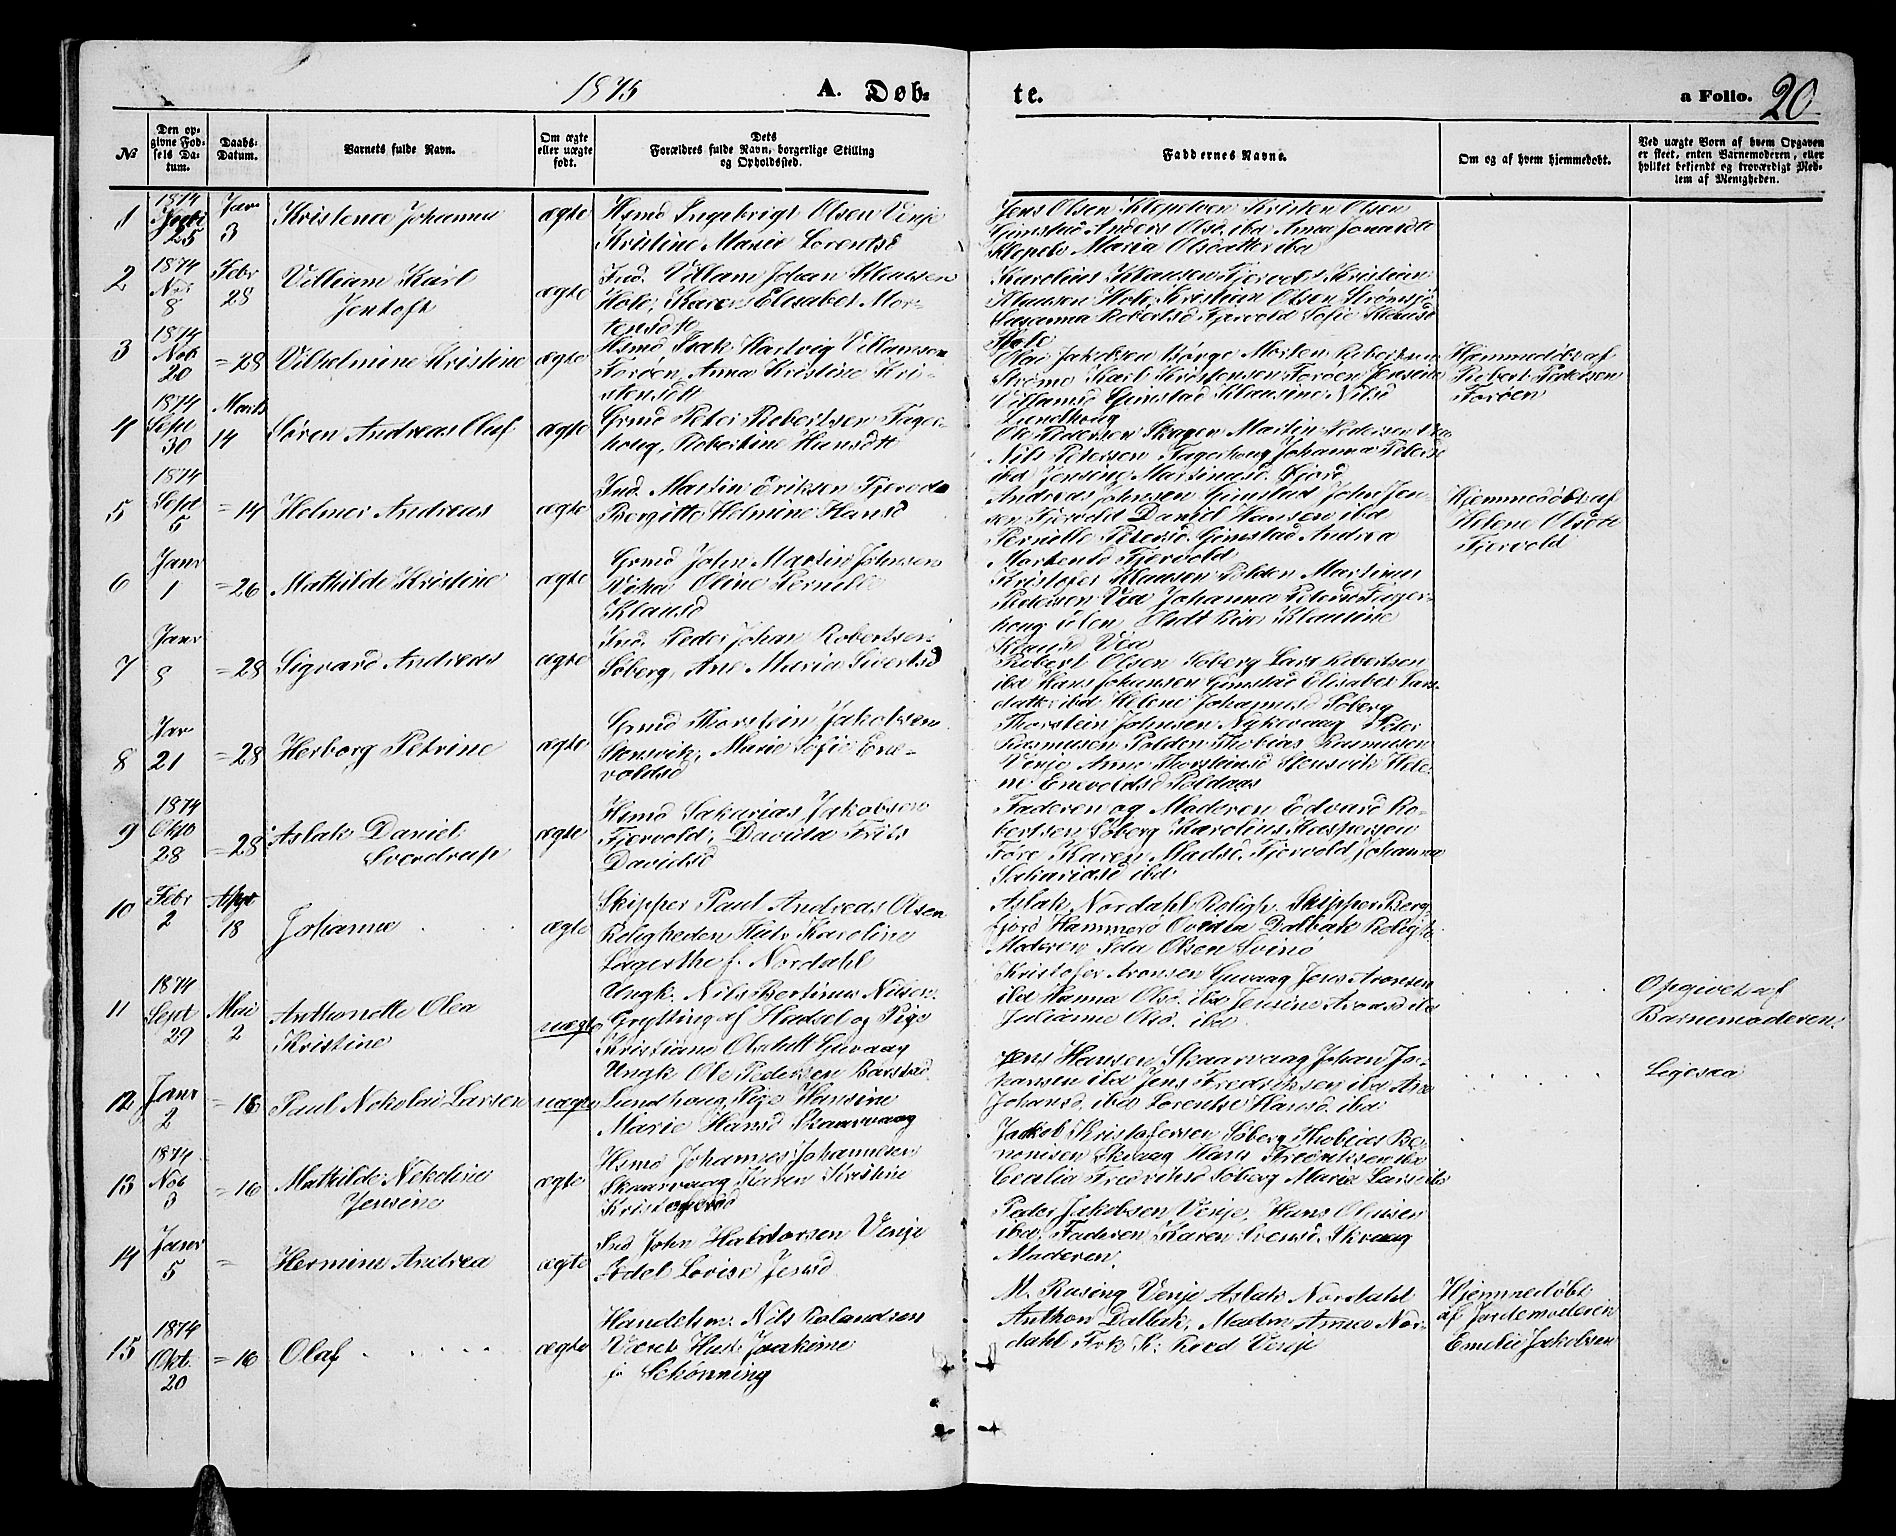 1875 A. Døb-
te. a Folio. 20
№
Den op-
givne Fød-
sels Da-
tum.
Daabs-
Datum.
Barnets fulde Navn.
Om ægte
eller uægte
født.
Dets
Forældres fulde Navn, borgerlige Stilling
og Opholdssted.
Faddernes Navne.
Om og af hvem hjemmedøbt.
Ved uægte Børn af hvem Opgaven
er skeet, enten Barnemoderen, eller
hvilket bekjendt og troværdigt Med-
lem af Menigheden.
1
1874
25
Jan
3
Kristence Johanna
ægte
Hsmd Ingebrigt Olsen Vinje
Kristine Marie Lorentsd
Jens Olsen Klepelven Kristen Olsen
Gimstad Anders Olsd. ibd Anna Jonasdtr
Maria Olsdatter ibd
2
1874
Nov
8
Febr
28
Villiam Karl
Jentoft
ægte
Ind. Villam Johan Klausen
Hole, Karen Elisabet Mor-
tensdtr
Karolius Klausen Fjervold Kristian
Klausen Hole, Kristian Olsen Strømsjø
Susanna Robertsd Fjervold Sofie Klausd
Hole
3
1874
Nov
20
=28
Vilhelmine Kristine
ægte
Hsmd Isak Hartvig Villamsen
Forøen, Anna Kristine Kri-
stensdtr
Olai Jakobsen Børge Morten Robertsen
Strøme Karl Kristensen Forøen Jensine
Villamsd Gimstad Klausine Nilsd
Lundhoug
Hjemmedøbt af
Robert Pedersen
Forøen
4
1874
Sept
30
Marts
14
Søren Andreas Oluf
ægte
Grmd Peter Robertsen Fager-
houg, Robertine Hansdtr
Ole Pedersen Skagen Martin Pedersen
Nils Petersen Fagerhoug Johanna Petersd
ibd Jensine Martinusd. Fjord
5
1874
Sept
5
=14
Helmer Andreas
ægte
Ind. Martin Eriksen Fjervold
Bergitte Helmine Hansd
Andreas Johnsen Gimstad John Jen-
sen Fjervold Daniel Hansen ibd
Pernille Petersd Gimstad Andrea
Mortensd Fjervold
Hjemmedøbt af
Helene Olsdtr
Fjervold
6
Janr
1
=26
Mathilde Kristine
ægte
Grmd John Martin Johnsen
Oline Pernille
Klausd
Kristofer Klausen Polden Martinus
Pedersen Vea Johanna Petersd Fager-
houg Klautine
Klausd Vea
7
Janr
9
=28
Sigvard Andreas
ægte
Ind. Peder Johan Robertsen
Søberg, Ane Maria Sivertsd
Robert Olsen Søberg Lars Robertsen
ibd Hans Johansen Gimstad Elisabet Lars-
datter ibd Helene Johannesd Søberg
8
Jan
21
=28
Herborg Petrine
ægte
Grmd Thorstein Jakobsen
Stensvik, Marie Sofie Ene-
voldsd
Thorstein Johnsen Nykvaag Peter
Rasmussen Polden Thobias Rasmussen
Vinje Anne Thorsteinsd Stensvik Hele-
ne Enevoldsd Poldaas
9
1874
Okto
28
=28
Aslak Daniel
Sverdrup
ægte
Hsmd Sakarias Jakobsen
Fjervold, Davida Friis
Davidsd
Faderen og Moderen Edvard Ro-
bertsen Søberg Karolius Kaspersen
Føre Karen Madsd. Fjervold Johanna
Sakariasd ibd
10
Febr
2
Apr
18
Johanne
ægte
Skipper Paul Andreas Olsen
Roligheden Hustr Karoline
Lagerthe f. Nordahl
Aslak Nordahl Roligh. Skipper Berg-
fjord Hammerø Ovedia Dalbak Roligh.
Moderen Ida Olsen Svinø
11
1874
Sept
29
Mai
2
Anthonette Olea
Kristine
uægte
Ungk. Nils Bertinus Nilsen
Grytting af Hadsel og Pige
Kristiane Olsdatt Guvaag
Kristofer Aronsen Guvaag Jens Aronsen
ibd Hanna Olsd. ibd Jensine Aronsd ibd
Julianne Olsd. ibd
Opgivet af
Barnemoderen.
12
Janr
2
=16
Paul Nikolai Larsen
uægte
Ungk Ole Pedersen
Lundhoug, Pige Hansine
Marie Hansd Skaarvaag
Jens Hansen Skaarvaag Johan Jo-
hansen ibd Jens Fredriksen ibd Ane
Johansd. ibd Lorentse Hansd. ibd
Ligesaa
13
1874
Nov
3
=16
Mathilde Nikoline
Jensine
ægte
Hsmd Johannes Johannesen
Skaarvaag Karen Kristine
Kristofersd
Jakob Kristofersen Søberg Thobias Be-
nonisen Skvaag Hans Fredriksen ibd
Cecilia Fredriksd Søberg Marie Larsd ibd
14
Janr
5
=
Hermine Andrea
ægte
Ind John Haldorsen Vinje
Adel Lovise Jensd
Peder Jakobsen Vinje, Hans Olausen
ibd. Faderen Karen Svensd. Skvaag
Moderen.
15
1874
Okt.
20
=16
Olaf
ægte
Handelsm. Nils Rolandsen
Hust. Joakime
f. Schønning
M. Rusing Vinje Aslak Nordahl
Anthon Dalbak, Madm Anna Nor-
dahl Frk Vinje
Hjemmedøbt
af Jordemoderen
Emelie Jakobsen